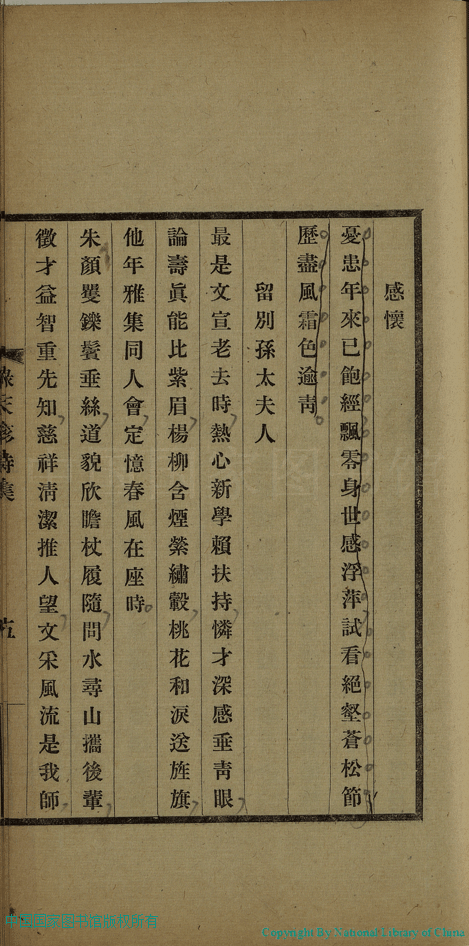 感懷
憂患年來已飽經飄零身世感浮萍試看絕壑蒼松節
歷盡風霜色逾青
留別孫太夫人
最是文宣老去時熱心新學賴扶持憐才深感垂青眼
論壽眞能比紫眉楊柳含煙縈繡轂桃花和淚送旌旗
他年雅集同人會定憶春風在座時
朱顏矍鑠鬢垂絲道貌欣瞻杖履隨問水尋山攜後輩
徵才益智重先知慈祥淸潔推人望文采風流是我師
詩集
五
Copyright By National Library of China